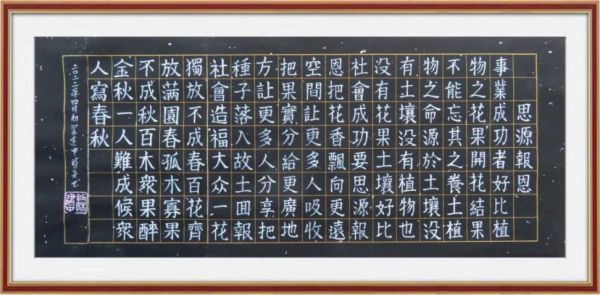 思源報恩
事業成功者好比植
物之花果開花結果
不能忘其之養土植
物之命源於土壤没
有土壤没有植物也
没有花果土壤好比
社會成功要思源報
恩把花香飄向更遠
空間讓更多人吸收
把果實分給更廣地
方讓更多人分享把
種子落入故土囬報
社會造福大众一花
獨放不成春百花齊
放满園春孤木寡果
不成秋百木衆果醉
金秋一人難成候衆
人寫春秋
二〇二二年四月初